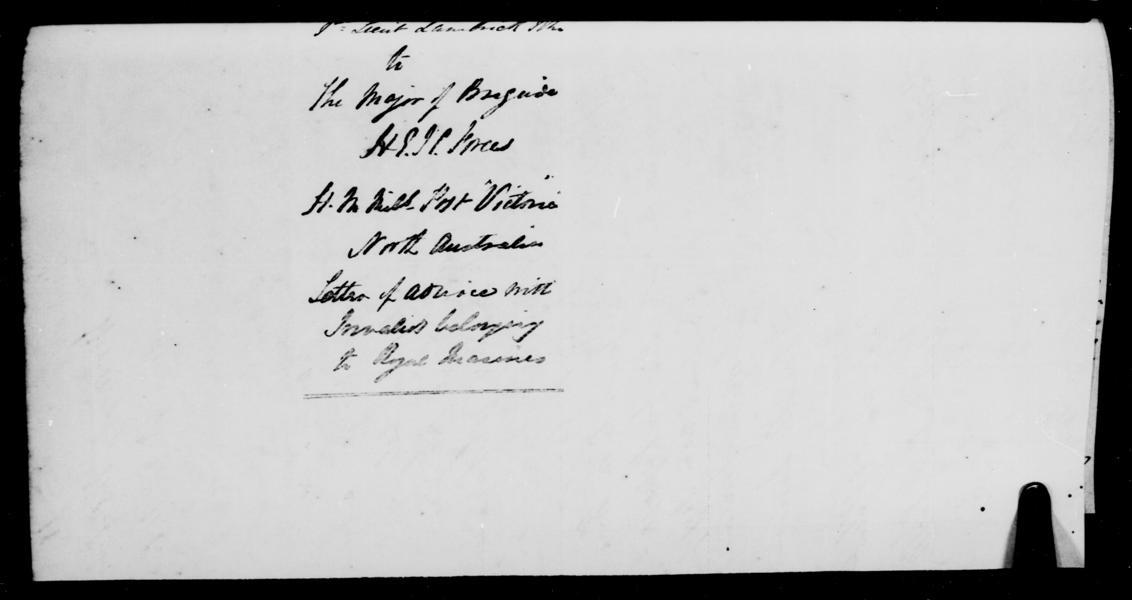 1st Lieut Lambrick RM
to
The Major of Brigade
H.E.I.C. Forces
H. M. Mil. Post "Victoria"
North Australia
Letter of advice with
Invalids belonging
to Royal Marines